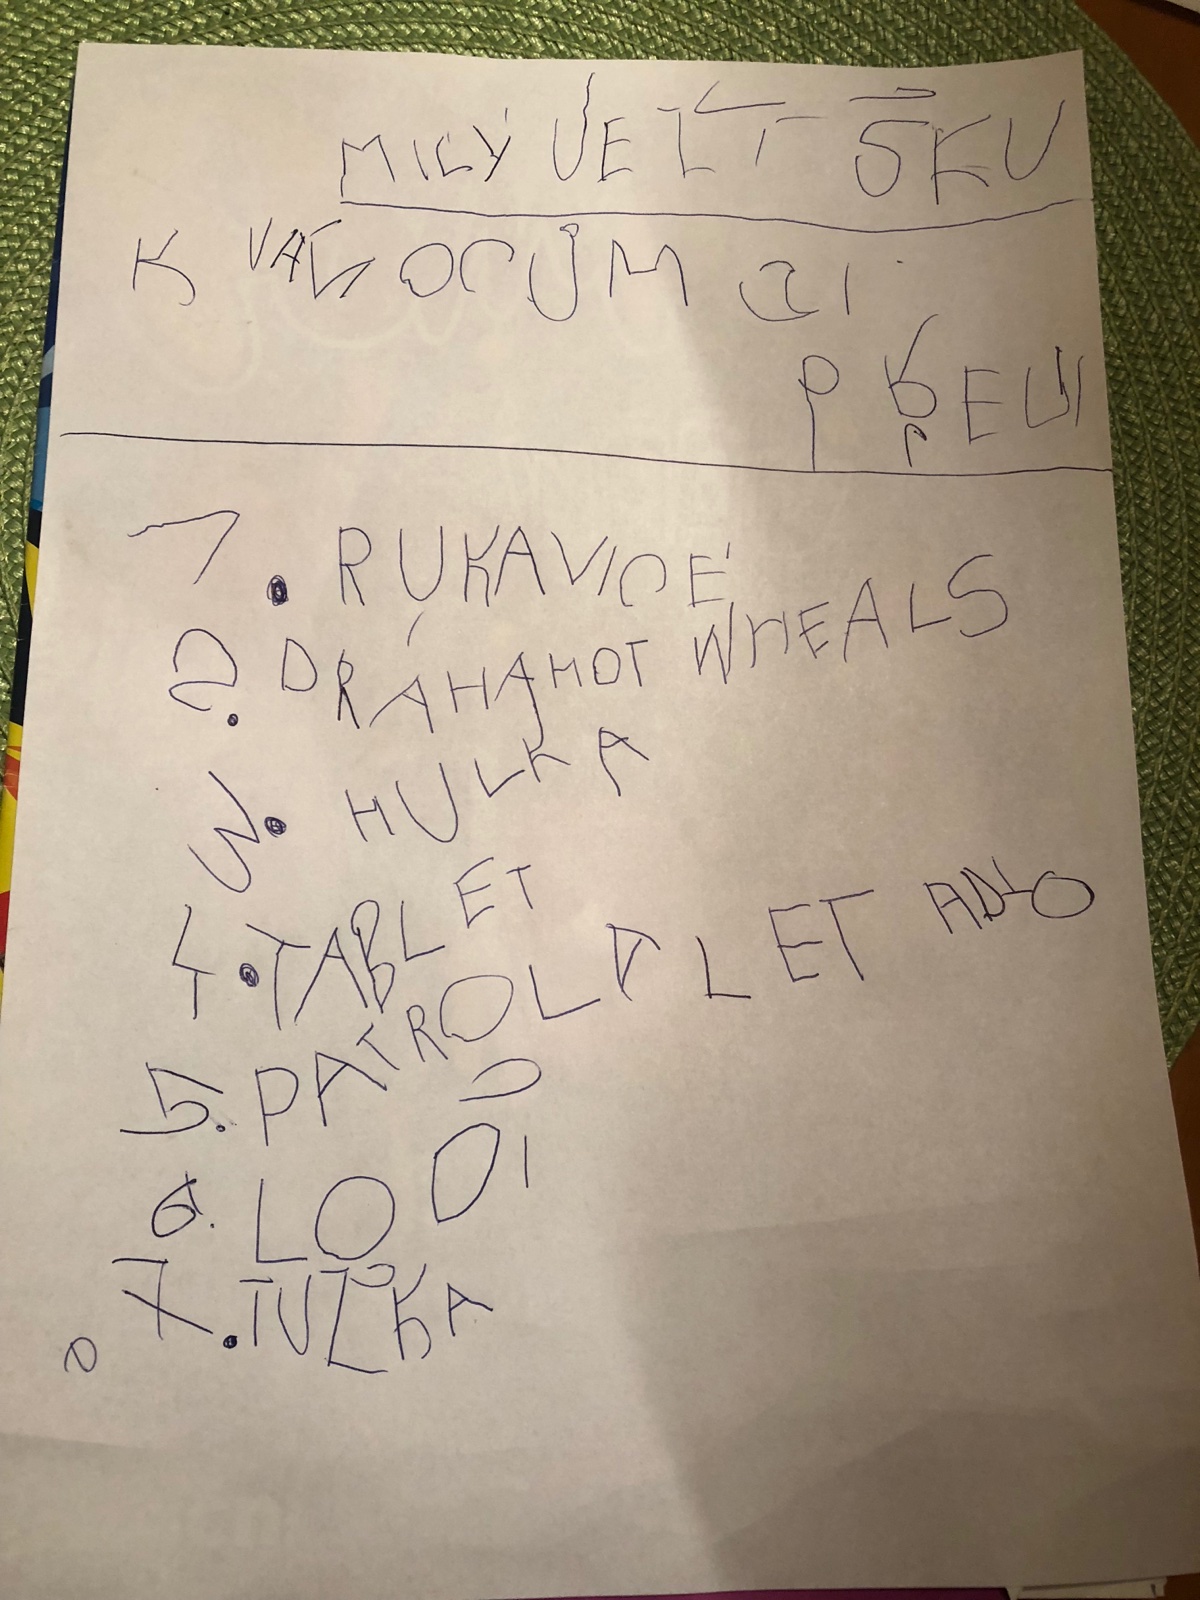 MILÝ JEŽÍŠKU
K VÁNOCŮM SI
PŘEJI
1. RUKAVICE
2. DRÁHA HOT WHEALS
3. HULKA
4. TABLET
5. PATROLA LETADLO
6. LODĚ
7. TUŽKA